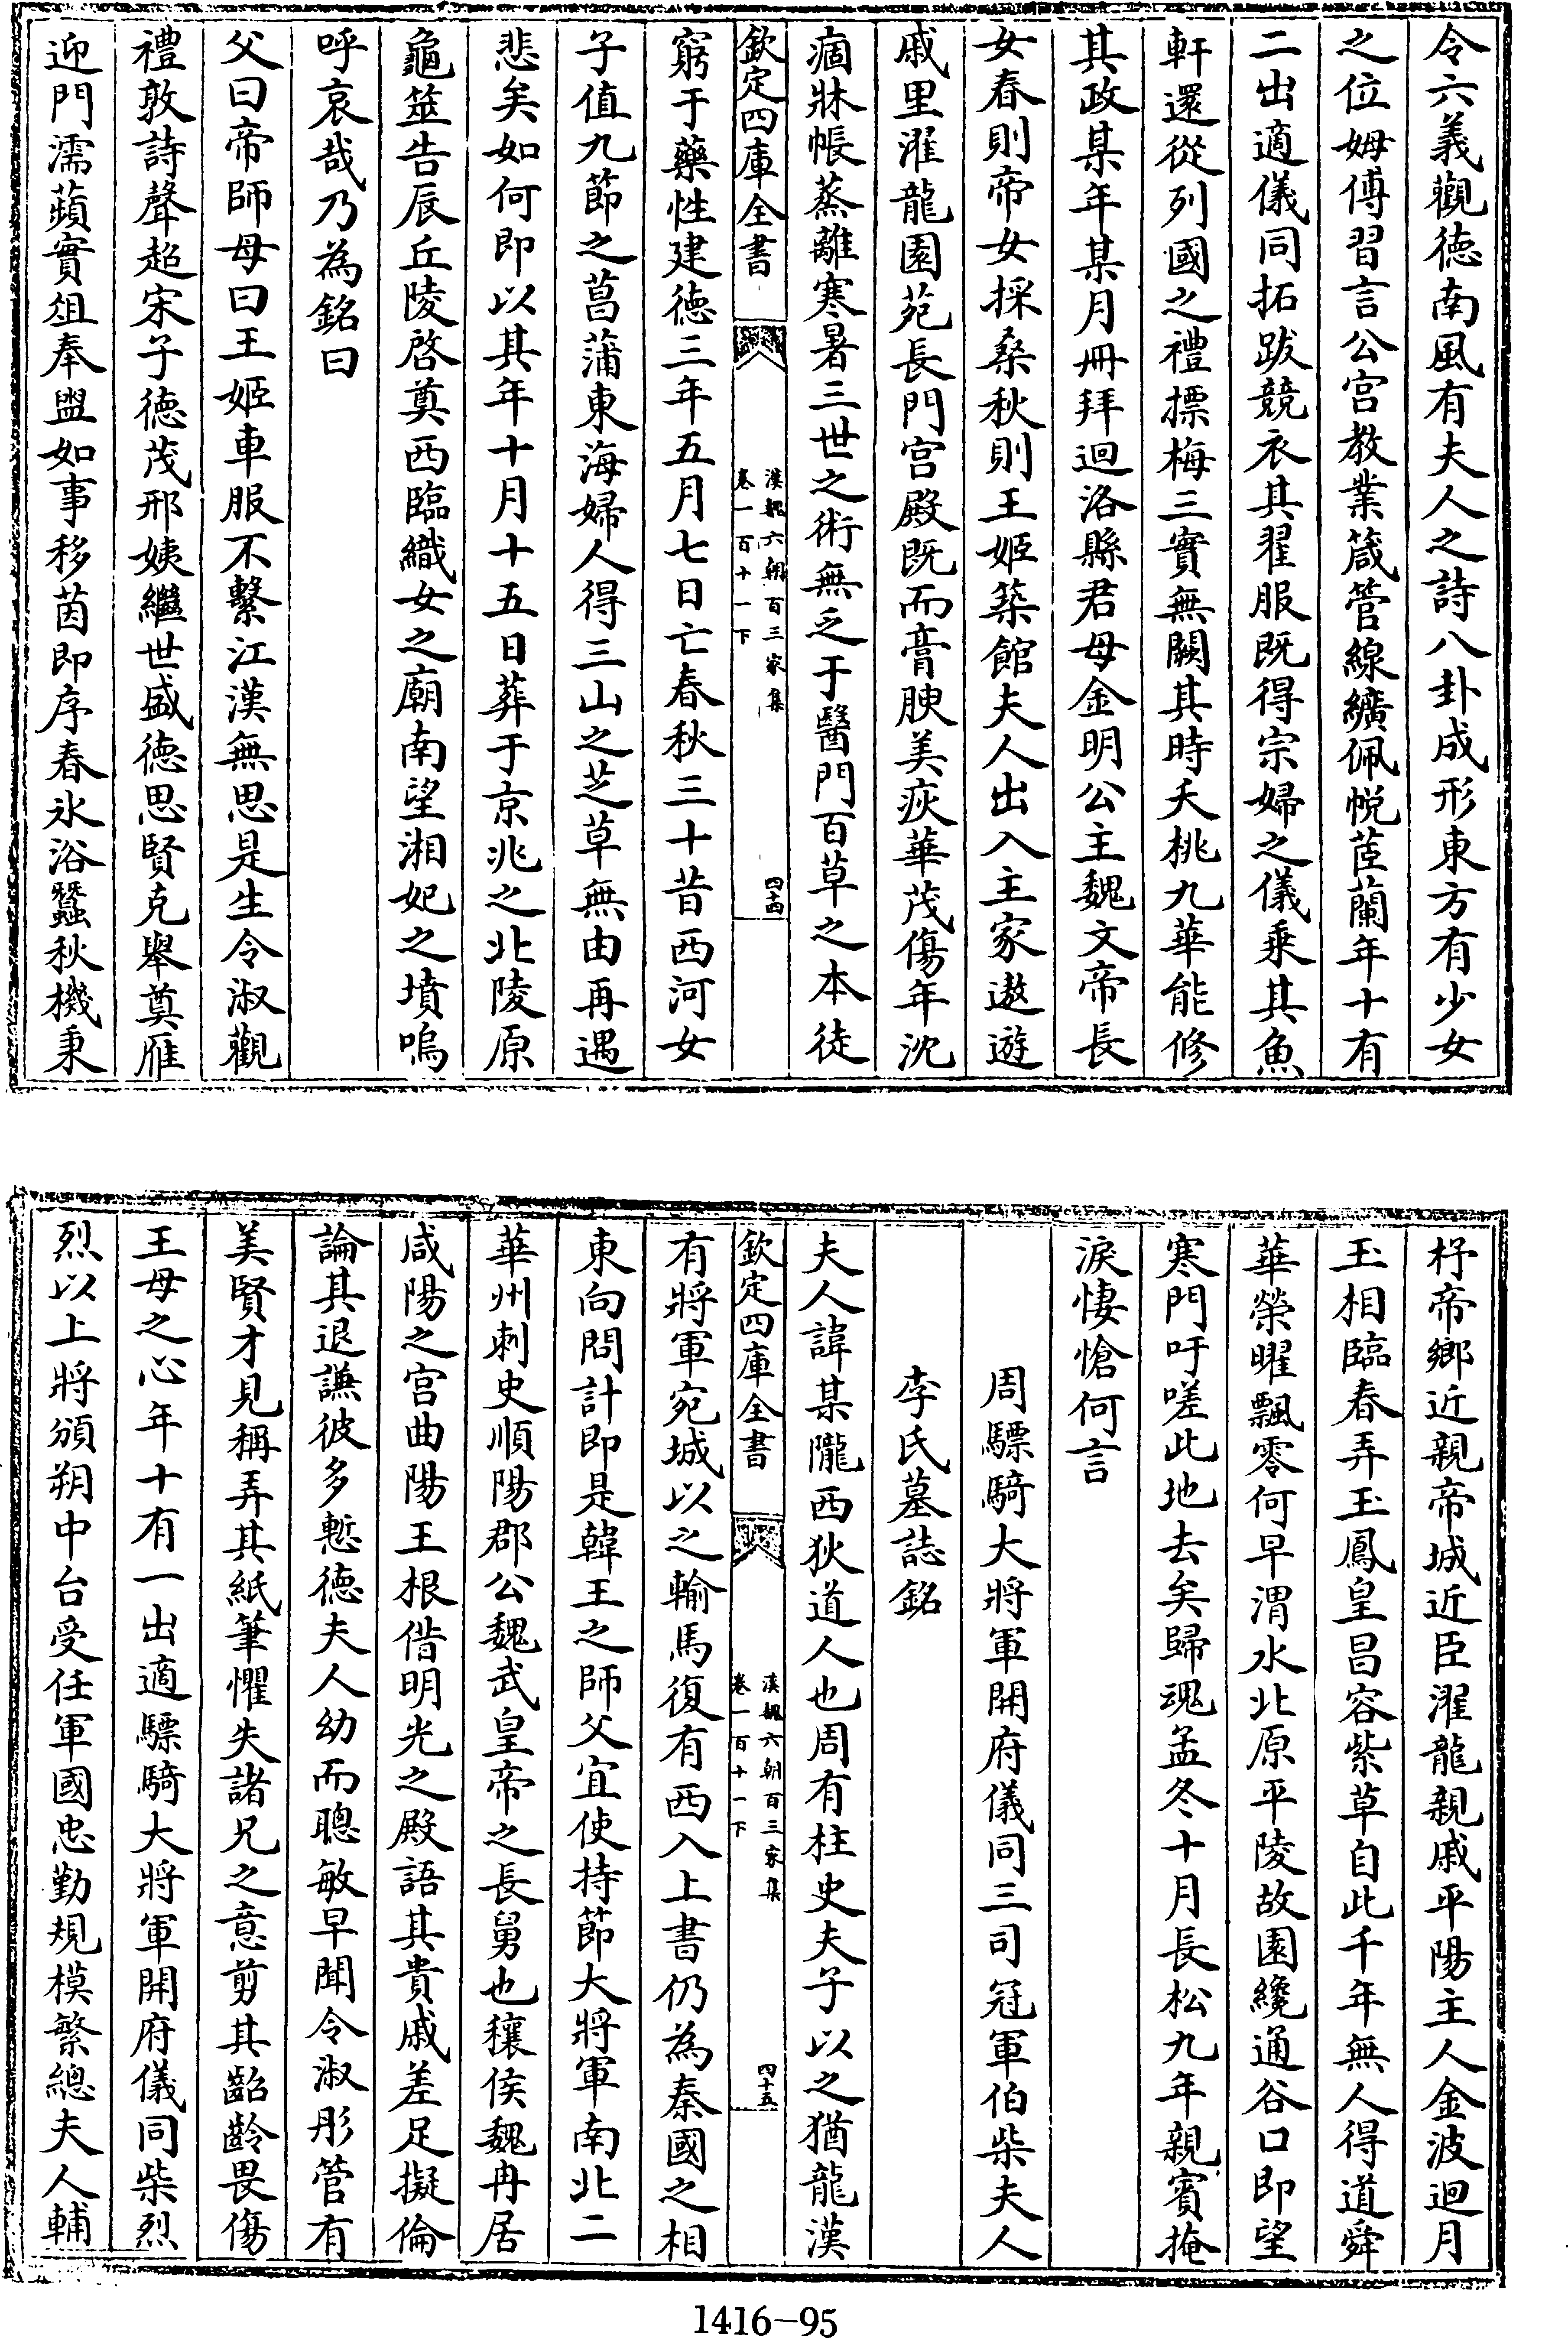 令六義觀徳南風有夫人之詩八卦成形東方有少女
之位姆傅習言公宫教業箴管線纊佩帨茝蘭年十有
二出適儀同拓跋競衣其翟服既得宗婦之儀乘其魚
軒還從列國之禮摽梅三實無闕其時夭桃九華能修
其政某年某月冊拜迴洛縣君母金明公主魏文帝長
女春則帝女採桑秋則王姬築館夫人出入主家遨遊
戚里濯龍園苑長門宫殿既而膏腴美疢華茂傷年沈
痼牀帳蒸離寒暑三世之術無乏于醫門百草之本徒
欽定四庫全書
漢魏六朝百三家集
卷一百十一下
四十四
窮于藥性建徳三年五月七日亡春秋三十昔西河女
子值九節之菖蒲東海婦人得三山之芝草無由再遇
悲矣如何即以其年十月十五日葬于京兆之北陵原
龜筮告辰丘陵啓奠西臨織女之廟南望湘妃之墳嗚
呼哀哉乃為銘曰
父曰帝師母曰王姬車服不繫江漢無思是生令淑觀
禮敦詩聲超宋子徳茂邢姨繼世盛徳思賢克舉奠雁
迎門濡蘋實俎奉盥如事移茵即序春氷浴蠶秋機秉
杼帝鄉近親帝城近臣濯龍親戚平陽主人金波迴月
玉相臨春弄玉鳳皇昌容紫草自此千年無人得道舜
華榮曜飄零何早渭水北原平陵故園纔通谷口即望
寒門吁嗟此地去矣歸魂孟冬十月長松九年親賓掩
淚悽愴何言
周驃騎大將軍開府儀同三司冠軍伯柴夫人
李氏墓誌銘
夫人諱某隴西狄道人也周有柱史夫子以之猶龍漢
欽定四庫全書
漢魏六朝百三家集
卷一百十一下
四十五
有將軍宛城以之輸馬復有西入上書仍為秦國之相
東向問計即是韓王之師父宜使持節大將軍南北二
華州刺史順陽郡公魏武皇帝之長舅也穰侯魏冉居
咸陽之宫曲陽王根借明光之殿語其貴戚差足擬倫
論其退謙彼多慙徳夫人幼而聰敏早聞令淑彤管有
美賢才見稱弄其紙筆懼失諸兄之意剪其齠齡畏傷
王母之心年十有一出適驃騎大將軍開府儀同柴烈
烈以上將頒朔中台受任軍國忠勤規模繁總夫人輔
1416-95